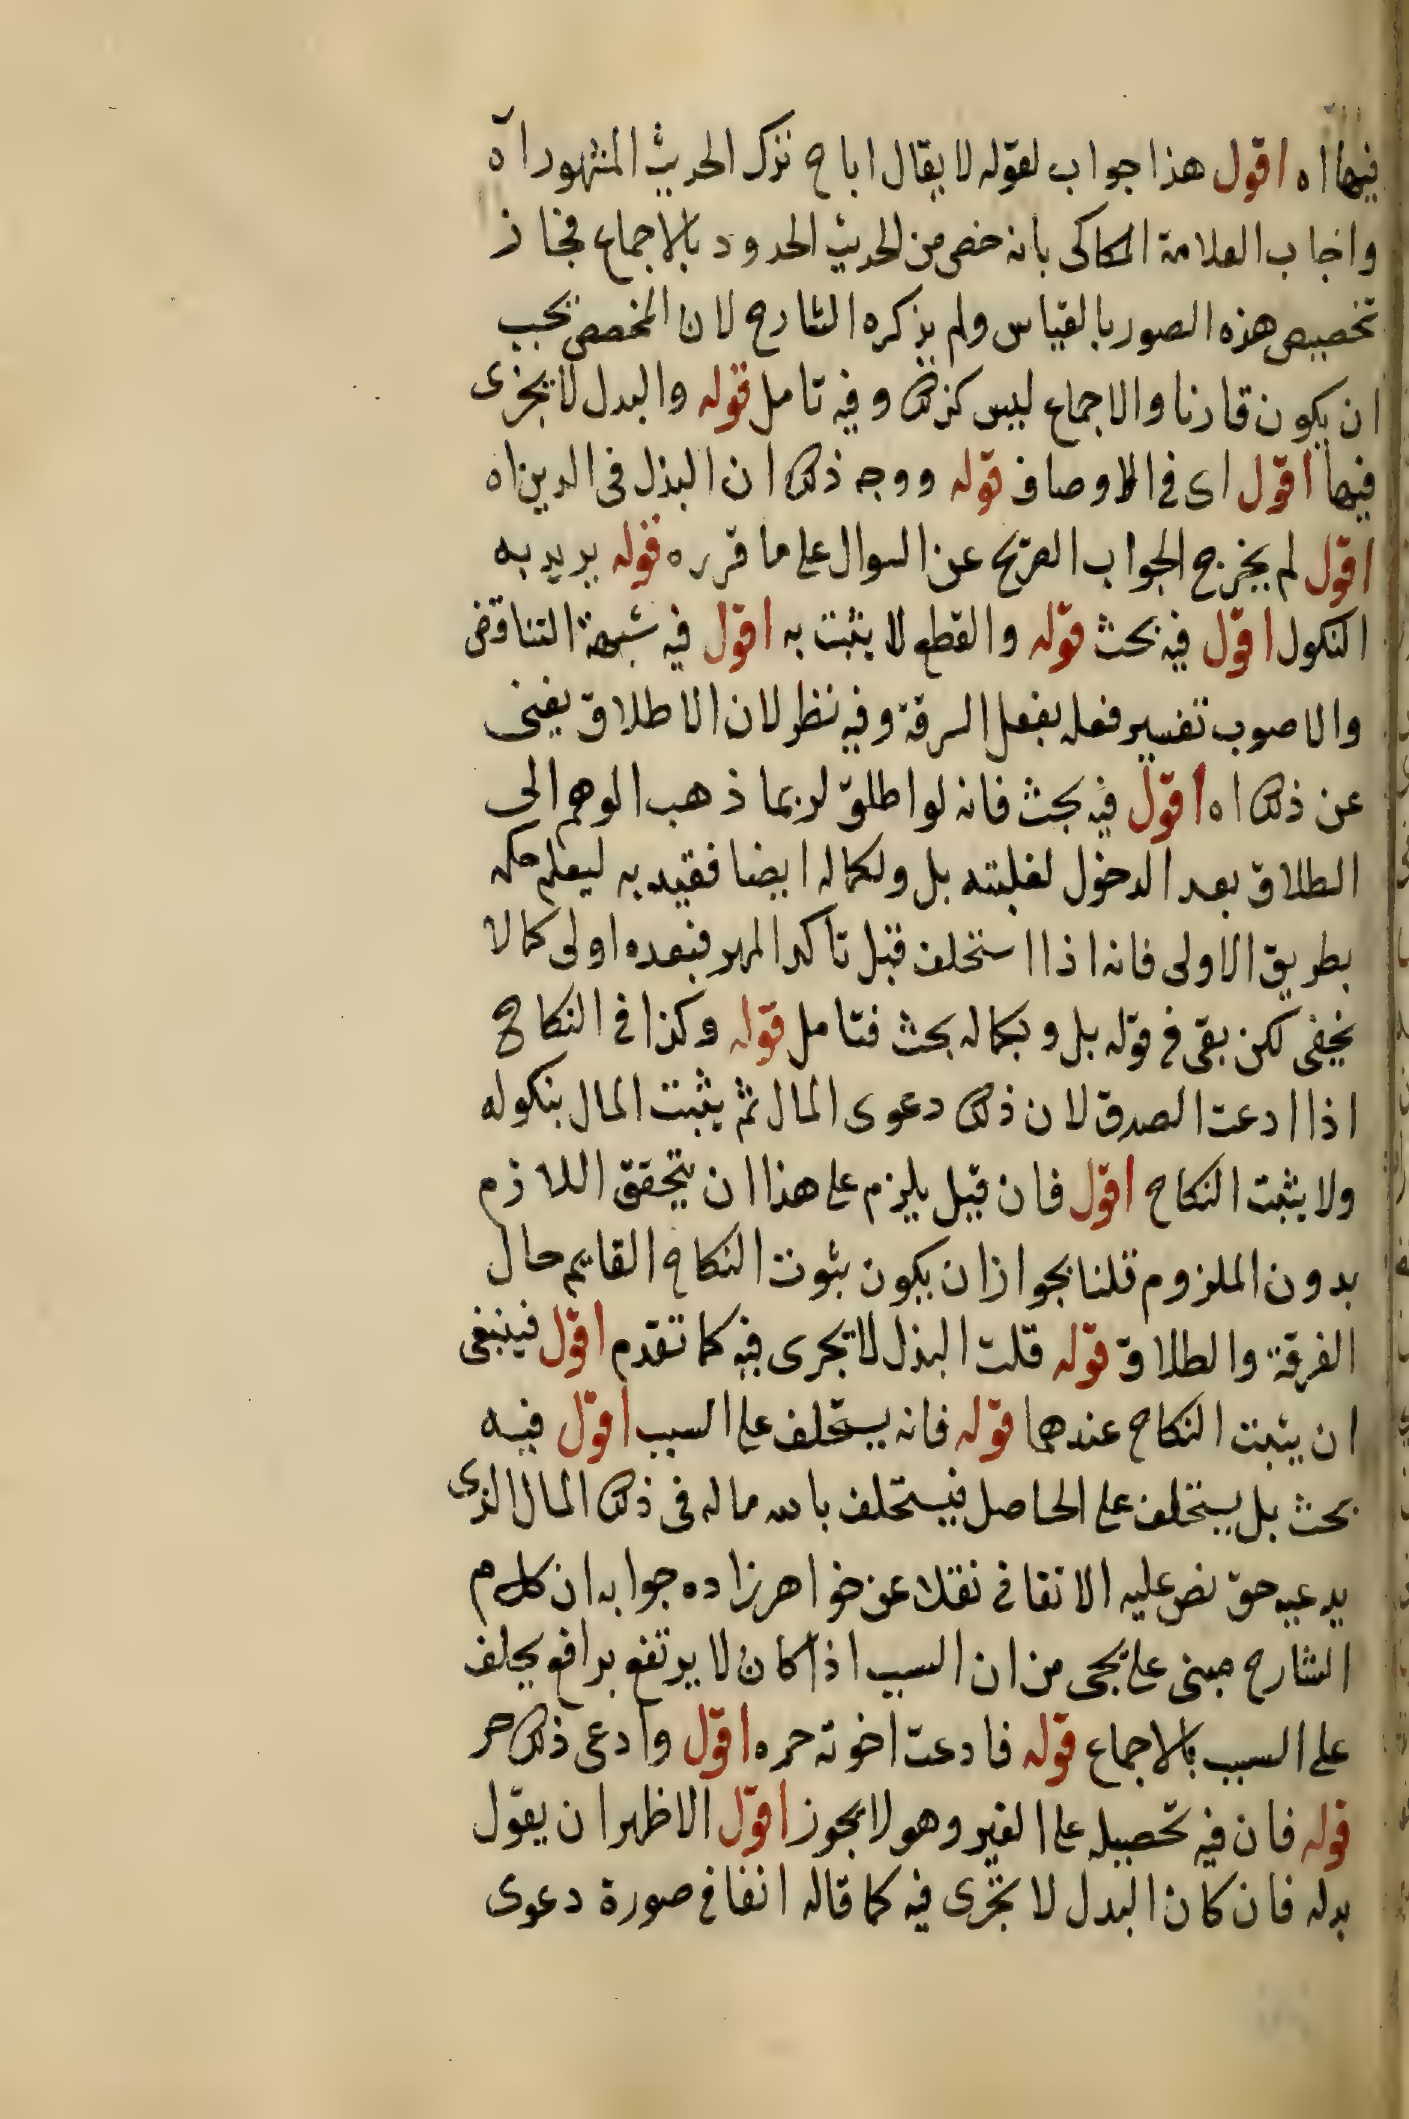 فيها اه اقول هذا جواب لقوله لا يقال اباح ترك الحديث المشهور اه
واجاب العلامة الكاكى بانه خص من الحديث الحدود بالاجماع فجاز
تخصيص هذه الصور بالقياس ولم يذكره الشارح لان المخصص يجب
ان يكون قارنا والاجماع ليس كذلك وفيه تامل قوله والبدل لا يجزى
فيها اقول اى فى الاوصاف قوله ووجه ذلك ان البذل فى الدين اه
اقول لم يخرج الجواب الصريح عن السوال على ما قرره قوله يريد به
النكول اقول فيه بحث قوله والقطع لا يثبت به اقول فيه شبهة التناقض
والاصوب تفسير فعله بفعل السرقة وفيه نظر لان الاطلاق يغنى
عن ذلك اه اقول فيه بحث فانه لو اطلق لربما ذهب الوهم الى
الطلاق بعد الدخول لغلبته بل ولكماله ايضا فقيد به ليعلم حكمه
بطريق الاولى فانه اذا استحلف قبل تاكد المهر فبعده اولى كما لا
يخفى لكن بقى فى قوله بل وبكماله بحث فتامل قوله وكذا فى النكاح
اذا ادعت الصدق لان ذلك دعوى المال ثم يثبت المال بنكوله
ولا يثبت النكاح اقول فان قيل يلزم على هذا ان يتحقق اللازم
بدون الملزوم قلنا يجواز ان يكون بثوت النكاح القايم حال
الفرقة والطلاق قوله قلت البذل لا يجرى فيه كما تقدم اقول فينبغى
ان يثبت النكاح عندهما قوله فانه يستحلف على السبب اقول فيه
بحث بل يستحلف على الحاصل فيستحلف بالله ماله فى ذلك المال الذى
يدعيه حق نص عليه الاتقانى نقلا عن خواهرزاده جوابه ان كلام
الشارح مبنى على يجى من ان السبب اذا كان لا يرتفع برافع يحلف
على السبب بالاجماع قوله فادعت اخوته حره اقول وادعى ذلك حر
قوله فان فيه تحصيله على الغير وهو لا يجوز اقول الاظهر ان يقول
بدله فان كان البدل لا تجزى فيه كما قاله انفا فى صورة دعوى